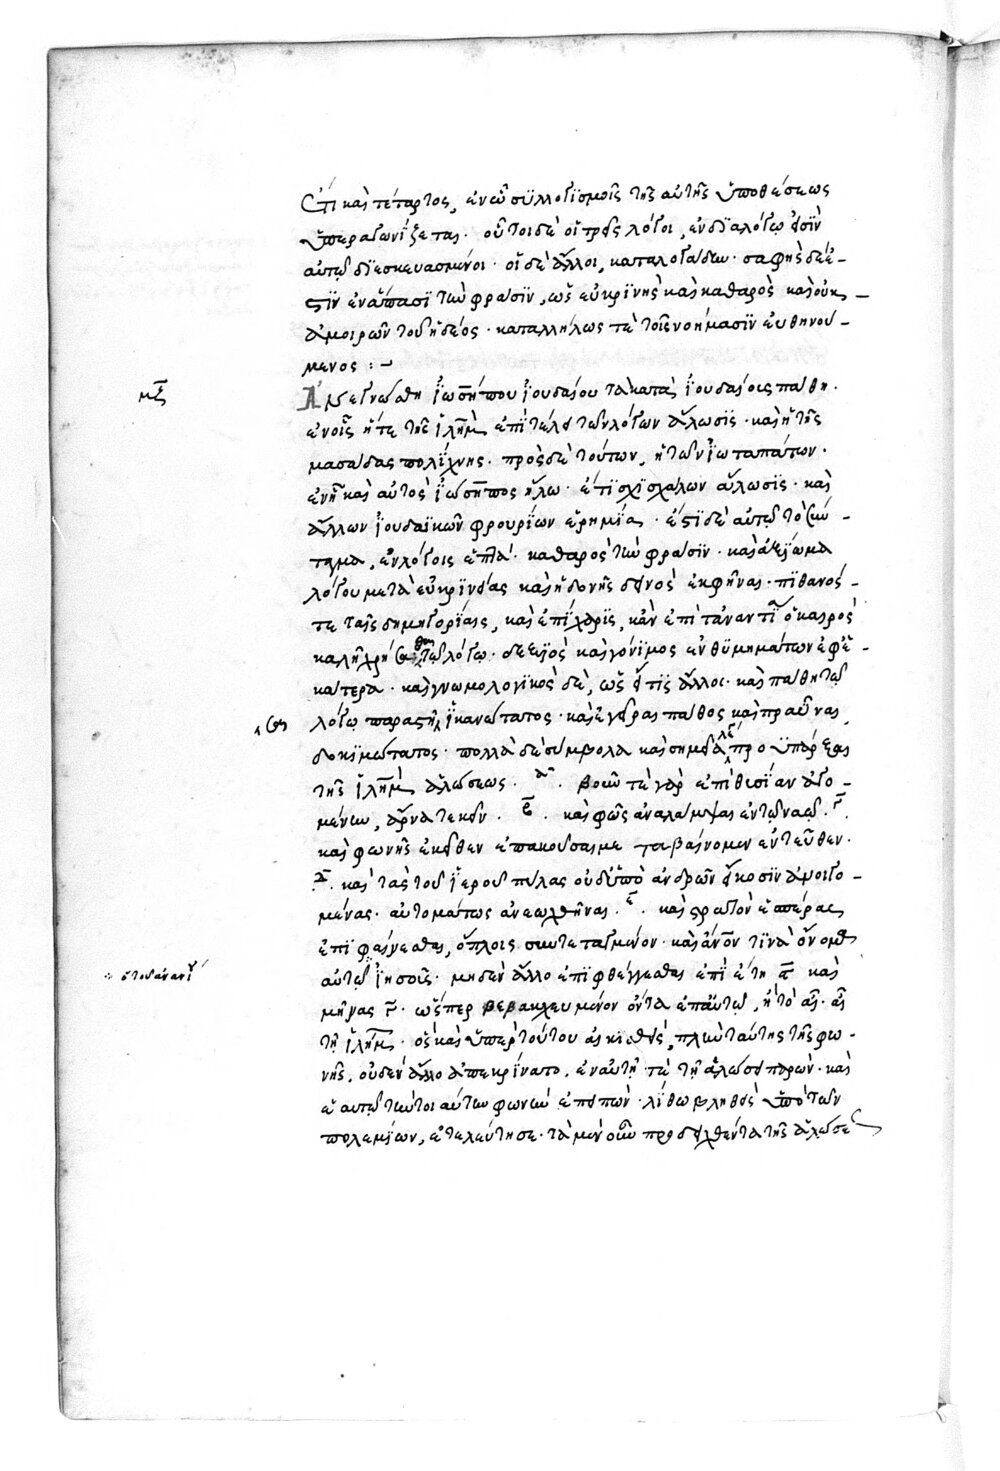 Ἔτι καὶ τέταρτος, ἐν ᾧ συλλογισμοῖς τῆς αὐτῆς ὑποθέσεως
ὑπεραγωνίζεται· οὗτοι δὲ οἱ τρεῖς λόγοι, ἐν διαλόγῳ εἰσὶν
αὐτῷ διεσκευασμένοι· οἱ δὲ ἄλλοι, καταλογάδην· σαφὴς δέ ἐ-
στιν ἐν ἅπασι τὴν φράσιν, ὡς εὐκρινὴς καὶ καθαρὸς καὶ οὐκ
ἀμοιρῶν τοῦ ἡδέος· καταλλήλως τὲ τοῖς νοήμασιν εὐθηνού-
μενος :–
μζ
Ἀνεγνώσθη ἰωσήπου ἰουδαίου τὰ κατὰ ἰουδαίους πάθη·
ἐν οἷς ἥ τε τῆς ἱλὴμ ἐπὶ τέλει τῶν λόγων ἅλωσις· καὶ ἡ τῆς
μασάδας πολίχνης· πρὸς δὲ τούτων, ἡ τῶν ἰωταπάτων·
ἐν ᾗ καὶ αὐτὸς ἰώσηπος ἥλω· ἔτι γισχάλων ἅλωσις· καὶ
ἄλλων ἰουδαϊκῶν φρουρίων ἐρημία· ἔστι δὲ αὐτῷ τὸ σύν-
ταγμα, ἐν λόγοις ἑπτά· καθαρὸς τὴν φράσιν· καὶ ἀξίωμα
λόγου μετὰ εὐκρινείας καὶ ἡδονῆς δεινὸς ἐκφῆναι· πιθανός
τε ταῖς δημηγορίαις, καὶ ἐπίχαρις, κἂν ἐπὶ τἀναντία ὁ καιρὸς
καλῇ χρήσασθαι τῷ λόγῳ· δεξιὸς καὶ γόνιμος ἐνθυμημάτων ἐφ' ἑ-
κάτερα· καὶ γνωμολογικὸς δὲ, ὡς εἴ τις ἄλλος· καὶ πάθη τῷ
λόγῳ παραστῆσαι ἱκανώτατος· καὶ ἐγεῖραι πάθος καὶ πραῧναι
δοκιμώτατος· πολλὰ δὲ σύμβολα καὶ σημεῖα λέγει προϋπάρξαι
τῆς ἱλὴμ ἁλώσεως. α. βοῦν τε γὰρ ἐπὶ θυσίαν ἀγο-
μένην, ἄρνα τεκεῖν. β. καὶ φῶς ἀναλάμψαι ἐν τῷ ναῷ. γ.
καὶ φωνῆς ἐκεῖθεν ἐπακοῦσαι μεταβαίνομεν ἐντεῦθεν·
δ. καὶ τὰς τοῦ ἱεροῦ πύλας οὐδ' ὑπὸ ἀνδρῶν εἴκοσιν ἀνοιγο-
μένας· αὐτομάτως ἀνεωχθῆναι. ε. καὶ στρατὸν ἑσπέρας
ἐπιφαίνεσθαι, ὅπλοις συντεταγμένον· καὶ ἄνον τινὰ ὄνομα
∴ υἱοῦ ἀνανίου
αὐτῷ ἰησοῦς· μηδὲν ἄλλο ἐπιφθέγγεσθαι ἐπὶ ἔτη ζ καὶ
μῆνας γ· ὥσπερ βεβακχευμένον ὄντα ἐπ' αὐτῷ, ἢ τὸ αἲ· αἲ
τῇ ἱλήμ· ὃς καὶ ὑπὲρ τούτου αἰκισθεὶς, πλὴν ταύτης τῆς φω-
νῆς, οὐδὲν ἄλλο ἀπεκρίνατο. ἐν αὐτῇ τὲ τῇ ἁλώσει παρών· καὶ
ἐν αὐτῷ ταύτην τὴν φωνὴν ἐπειπών· λίθῳ βληθεὶς ὑπὸ τῶν
πολεμίων, ἐτελεύτησε· τὰ μὲν οὖν προδειχθέντα τῆς ἁλώσε